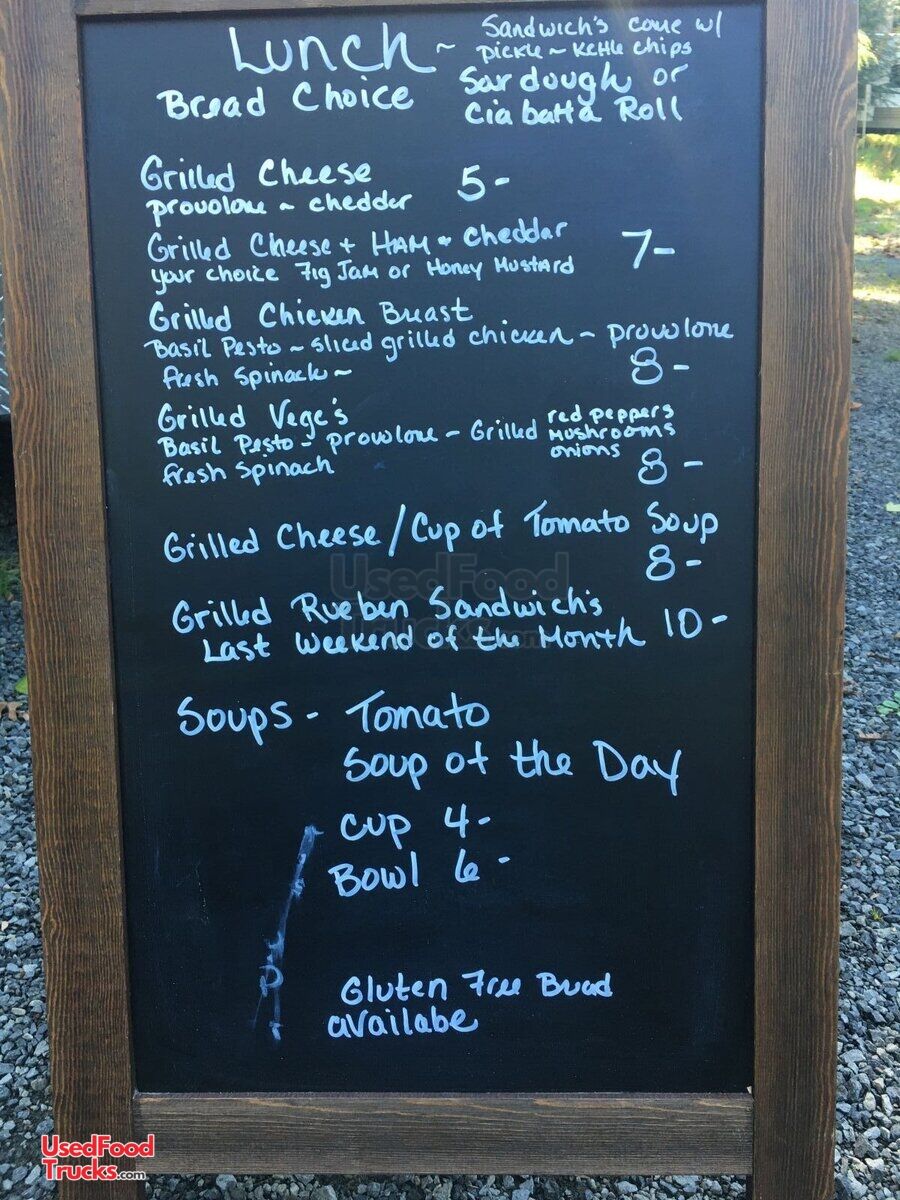 Lunch ~ Sandwich's come w/
pickle ~ Kettle chips
Bread Choice Sardough or
Ciabatta Roll
Grilled Cheese 5-
provolone ~ cheddar
Grilled Cheese + HAM + Cheddar 7-
your choice Fig Jam or Honey Mustard
Grilled Chicken Breast
Basil Pesto ~ sliced grilled chicken ~ provolone
fresh Spinach ~ 8-
Grilled Vege's
Basil Pesto - provolone - Grilled red peppers
mushrooms
onions
fresh Spinach 8-
Grilled Cheese / Cup of Tomato Soup
8-
Grilled Rueben Sandwich's
Last Weekend of the Month 10-
Soups - Tomato
Soup of the Day
Cup 4-
Bowl 6-
Gluten Free Bread
availabe
UsedFood
Trucks.com
UsedFood
Trucks.com